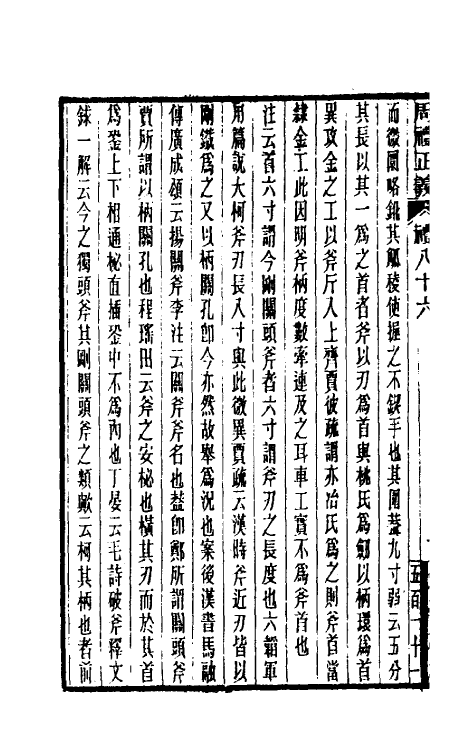 周禮正義 禮八十六
而微圜略銳其觚稜使握之不鍥手也其圍蓋九寸弱云五分
其長以其一爲之首者斧以刃爲首與桃氏爲劒以柄環爲首
異攻金之工以斧斤入上齊賈彼疏謂亦冶氏爲之則斧首當
隸金工此因明斧柄度數牽連及之耳車工實不爲斧首也
注云首六寸謂今剛關頭斧者六寸謂斧刃之長度也六韜軍
用篇說大柯斧刃長八寸與此微異賈疏云漢時斧近刃皆以
剛鐵爲之又以柄關孔卽今亦然故舉爲況也案後漢書馬融
傳廣成頌云揚關斧李注云關斧斧名也葢卽鄭所謂關頭斧
賈所謂以柄關孔也程瑤田云斧之安柲也橫其刃而於其首
爲銎上下相通柲直插銎中不爲內也丁晏云毛詩破斧釋文
銶一解云今之獨頭斧其剛關頭斧之類歟云柯其柄也者前